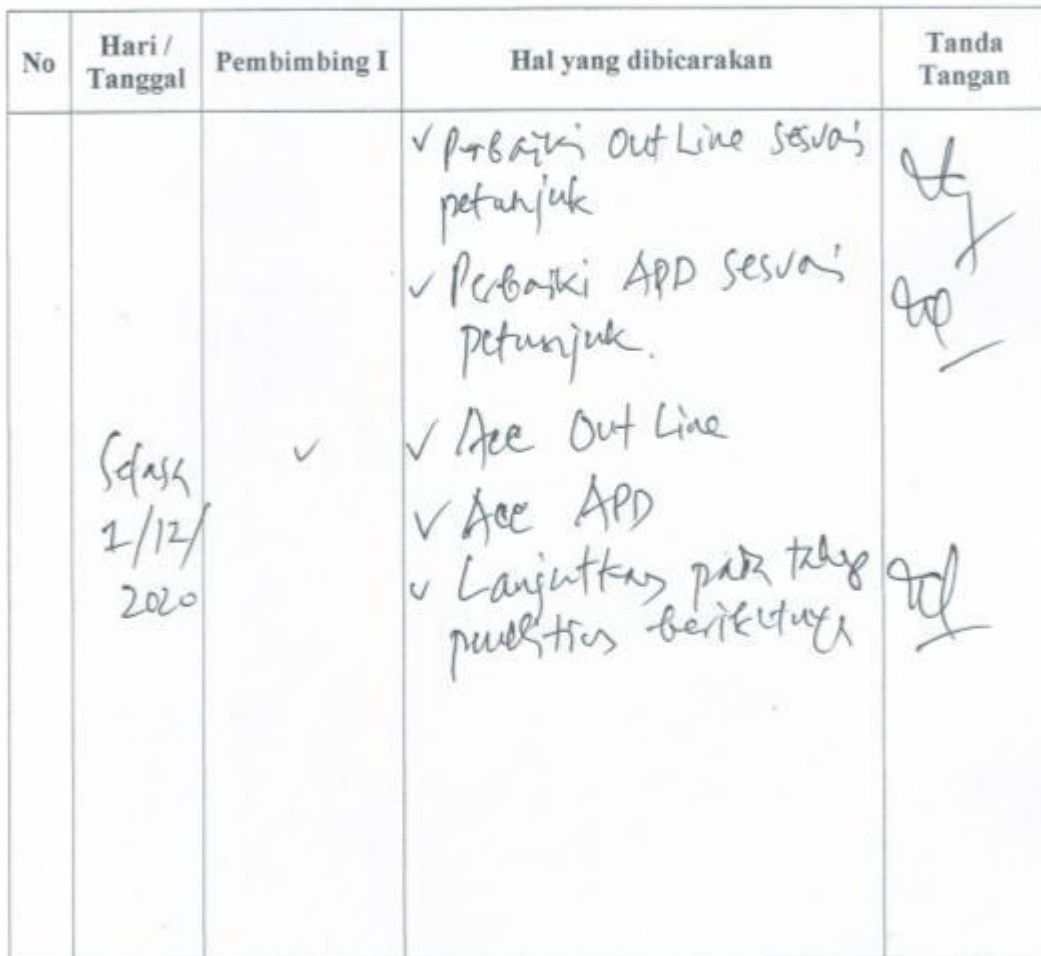 No
Hari /
Tanggal
Pembimbing I
Hal yang dibicarakan
Tanda
Tangan
✓ Perbaiki OutLine sesuai
petunjuk
✓ Perbaiki APD sesuai
petunjuk.
Selasa
1/12/
2020
✓
✓ Acc Out Line
✓ Acc APD
✓ Lanjutkan pada tahap
penelitian berikutnya